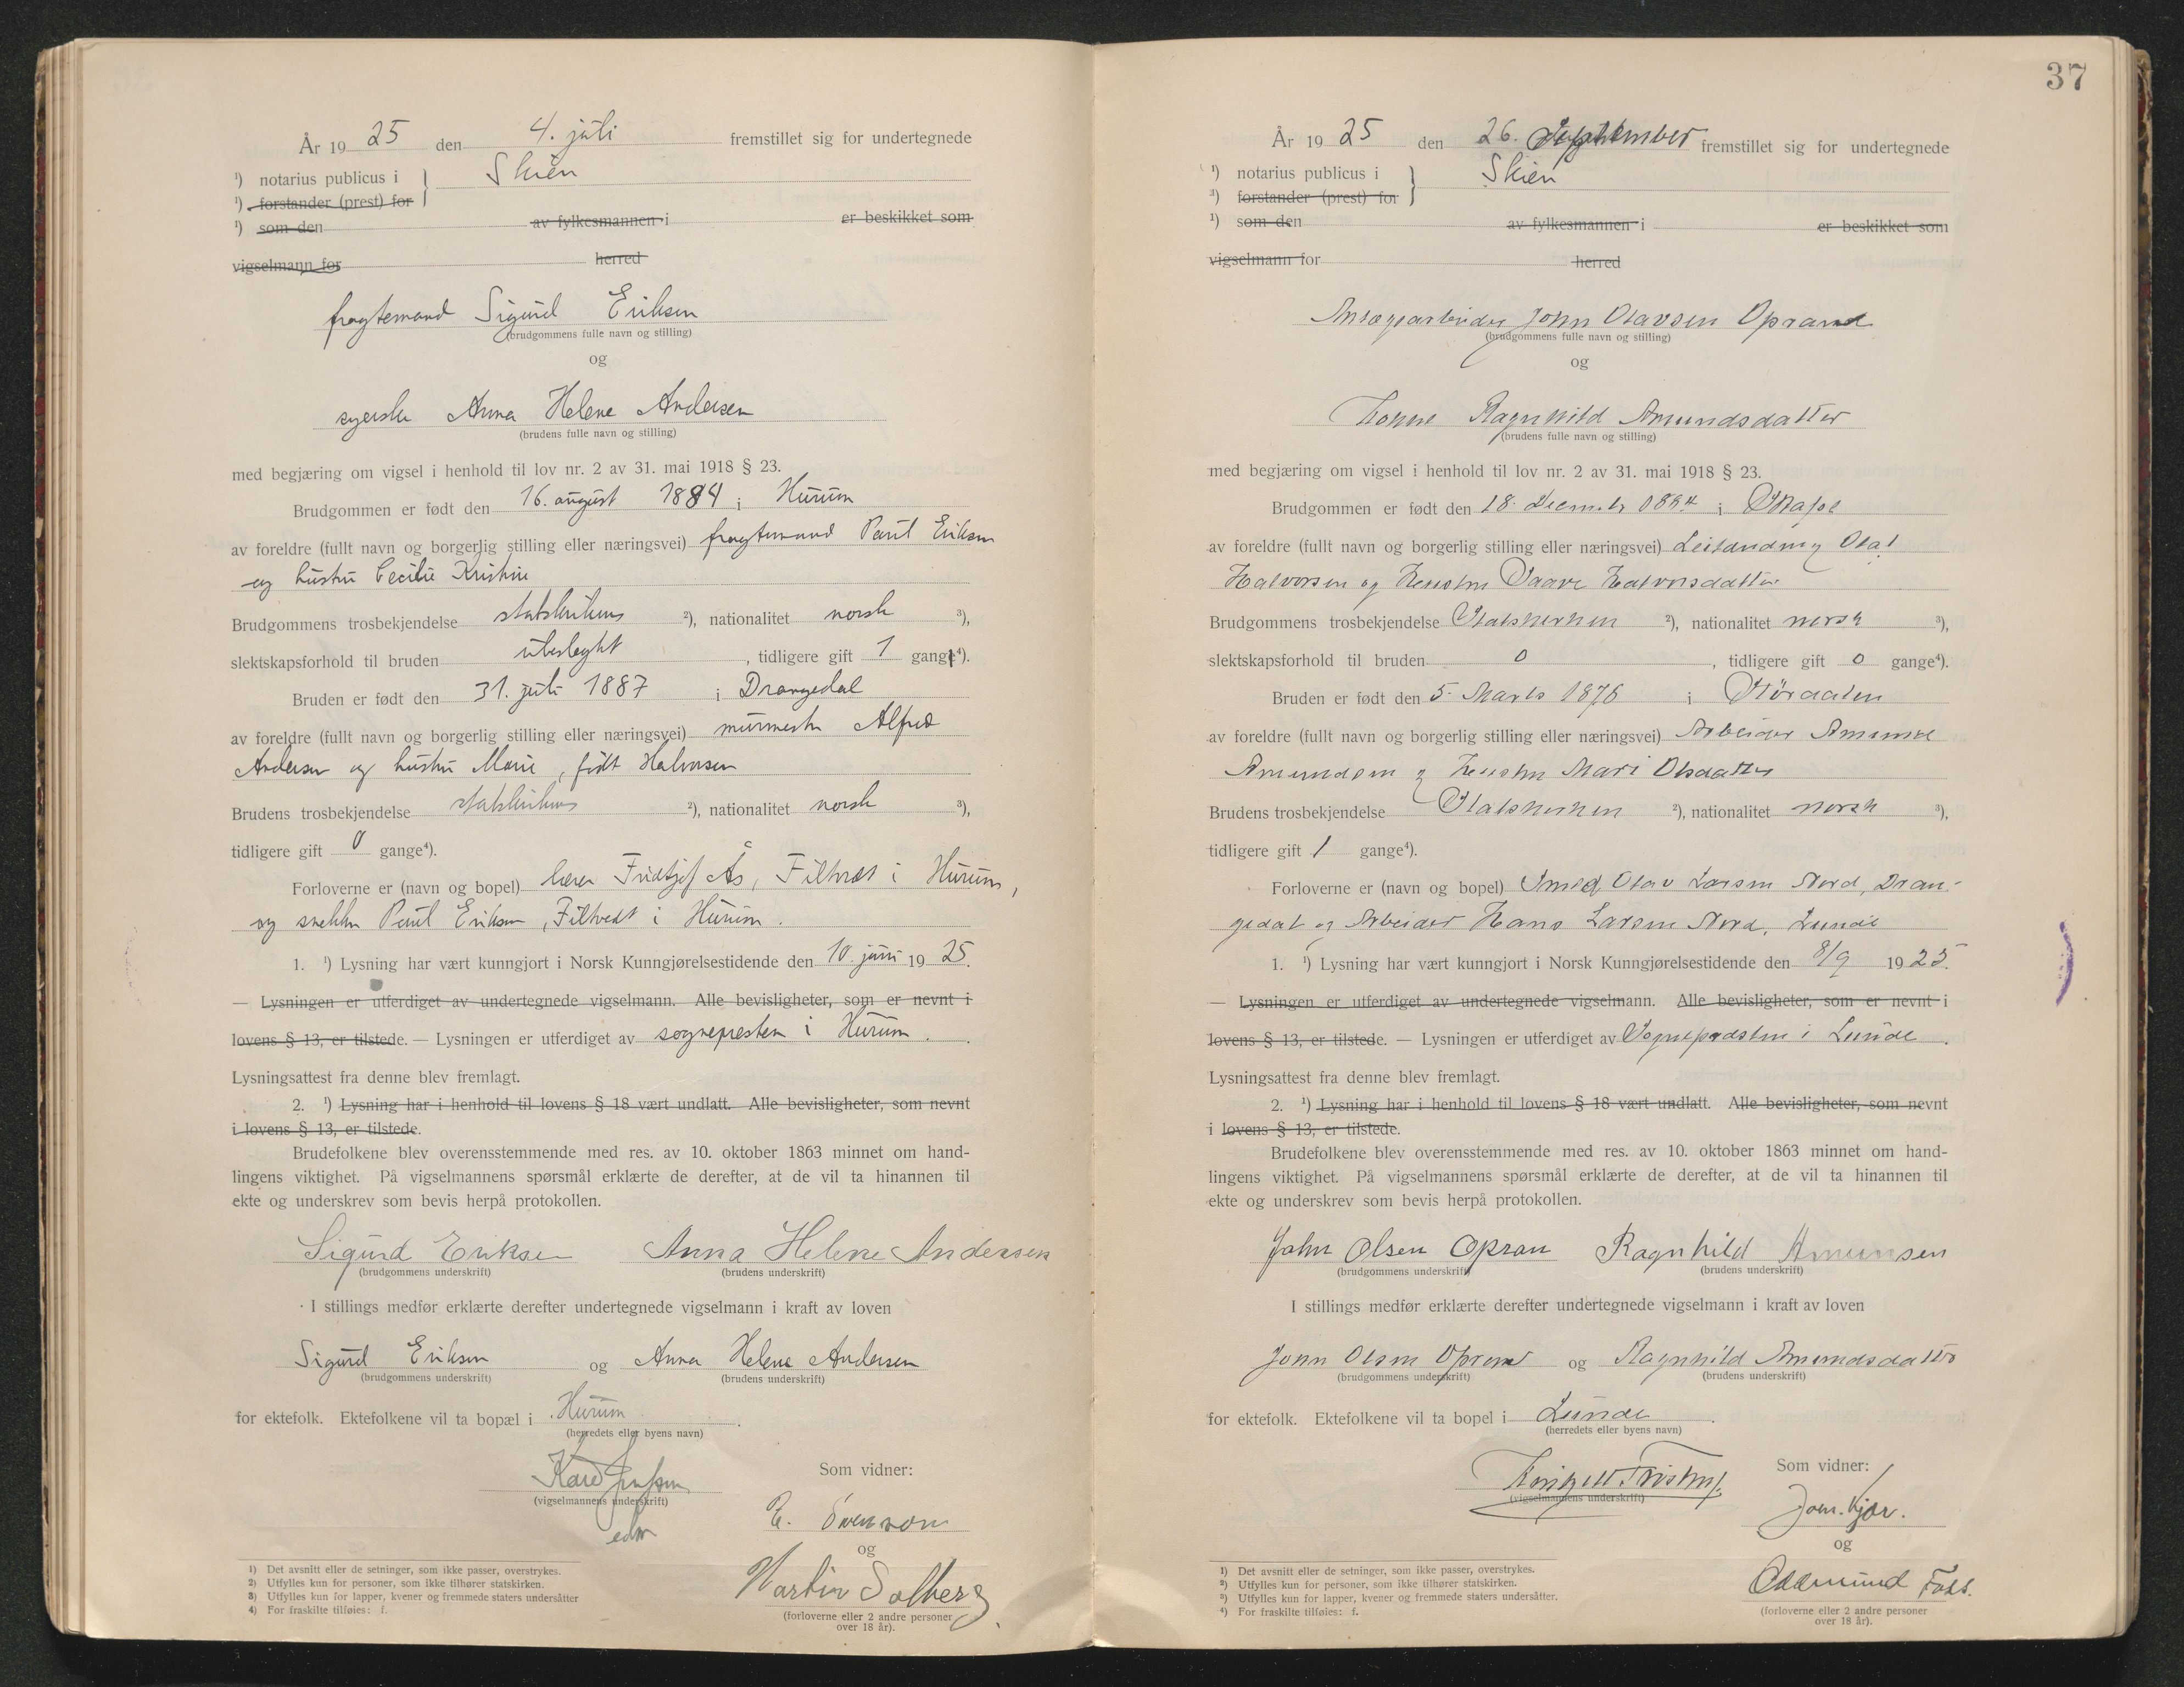 År 19 25 den 4. juli fremstillet sig for undertegnede
¹) notarius publicus i } Skien
¹) forstander (prest) for
¹) som den av fylkesmannen i er beskikket som
vigselmann for herred
fragtemand Sigurd Eriksen
(brudgommens fulle navn og stilling)
og
syerske Anna Helene Andersen
(brudens fulle navn og stilling)
med begjæring om vigsel i henhold til lov nr. 2 av 31. mai 1918 § 23.
Brudgommen er født den 16. august 1884 i Hurum
av foreldre (fullt navn og borgerlig stilling eller næringsvei) fragtemand Paul Eriksen
og hustru Cecilie Kristine
Brudgommens trosbekjendelse statskirkens ²), nationalitet norsk ³),
slektskapsforhold til bruden ubeslegtet , tidligere gift 1 gang⁴).
Bruden er født den 31. juli 1887 i Drangedal
av foreldre (fullt navn og borgerlig stilling eller næringsvei) murmester Alfred
Andersen og hustru Marie, født Halvorsen
Brudens trosbekjendelse statskirkens ²), nationalitet norsk ³),
tidligere gift 0 gange⁴).
Forloverne er (navn og bopel) lærer Fridtjof Ås, Filtvet i Hurum,
og snekker Paul Eriksen, Filtvedt i Hurum.
1. ¹) Lysning har vært kunngjort i Norsk Kunngjørelsestidende den 10. juni 19 25.
— Lysningen er utferdiget av undertegnede vigselmann. Alle bevisligheter, som er nevnt i
lovens § 13, er tilstede. — Lysningen er utferdiget av sognepresten i Hurum.
Lysningsattest fra denne blev fremlagt.
2. ¹) Lysning har i henhold til lovens § 18 vært undlatt. Alle bevisligheter, som nevnt
i lovens § 13, er tilstede.
Brudefolkene blev overensstemmende med res. av 10. oktober 1863 minnet om hand-
lingens viktighet. På vigselmannens spørsmål erklærte de derefter, at de vil ta hinannen til
ekte og underskrev som bevis herpå protokollen.
Sigurd Eriksen Anna Helene Andersen
(brudgommens underskrift) (brudens underskrift)
I stillings medfør erklærte derefter undertegnede vigselmann i kraft av loven
Sigurd Eriksen og Anna Helene Andersen
(brudgommens underskrift) (brudens underskrift)
for ektefolk. Ektefolkene vil ta bopæl i Hurum.
(herredets eller byens navn)
Som vidner:
(vigselmannens underskrift)
E. Svenson
og
Martin Solberg
(forloverne eller 2 andre personer
over 18 år).
1) Det avsnitt eller de setninger, som ikke passer, overstrykes.
2) Utfylles kun for personer, som ikke tilhører statskirken.
3) Utfylles kun for lapper, kvener og fremmede staters undersåtter
4) For fraskilte tilføies: f.
37
År 19 25 den 26. September fremstillet sig for undertegnede
¹) notarius publicus i } Skien
¹) forstander (prest) for
¹) som den av fylkesmannen i er beskikket som
vigselmann for herred
Anlægsarbeider John Olavsen Oprand
(brudgommens fulle navn og stilling)
og
Ragnhild Amundsdatter
(brudens fulle navn og stilling)
med begjæring om vigsel i henhold til lov nr. 2 av 31. mai 1918 § 23.
Brudgommen er født den 18. Decembr 1884 i Skafse
av foreldre (fullt navn og borgerlig stilling eller næringsvei) Leilænding Olaf
Halvorsen og Hustru Halvorsdatter
Brudgommens trosbekjendelse Statskirken ²), nationalitet norsk ³),
slektskapsforhold til bruden 0 , tidligere gift 0 gange⁴).
Bruden er født den 5. Marts 1876 i Støraalen
av foreldre (fullt navn og borgerlig stilling eller næringsvei) Arbeider Amund
Amundsen og Hustru Mari Olsdatter
Brudens trosbekjendelse Statskirken ²), nationalitet norsk ³),
tidligere gift 1 gange⁴).
Forloverne er (navn og bopel) Smed Olav Larsen Nord, Dran-
gedal og Arbeider Hans Larsen Nord, Lunde
1. ¹) Lysning har vært kunngjort i Norsk Kunngjørelsestidende den 8/9 19 25.
— Lysningen er utferdiget av undertegnede vigselmann. Alle bevisligheter, som er nevnt i
lovens § 13, er tilstede. — Lysningen er utferdiget av Sognepræsten i Lunde.
Lysningsattest fra denne blev fremlagt.
2. ¹) Lysning har i henhold til lovens § 18 vært undlatt. Alle bevisligheter, som nevnt
i lovens § 13, er tilstede.
Brudefolkene blev overensstemmende med res. av 10. oktober 1863 minnet om hand-
lingens viktighet. På vigselmannens spørsmål erklærte de derefter, at de vil ta hinannen til
ekte og underskrev som bevis herpå protokollen.
John Olsen Opran Ragnhild Amunsen
(brudgommens underskrift) (brudens underskrift)
I stillings medfør erklærte derefter undertegnede vigselmann i kraft av loven
John Olsen Oprand og Ragnhild Amundsdatter
(brudgommens underskrift) (brudens underskrift)
for ektefolk. Ektefolkene vil ta bopel i Lunde.
(herredets eller byens navn)
Som vidner:
(vigselmannens underskrift)
Joh. Kjær.
og
Oddmund Foss.
(forloverne eller 2 andre personer
over 18 år).
¹) Det avsnitt eller de setninger, som ikke passer, overstrykes.
²) Utfylles kun for personer, som ikke tilhører statskirken.
³) Utfylles kun for lapper, kvener og fremmede staters undersåtter.
⁴) For fraskilte tilføies: f.